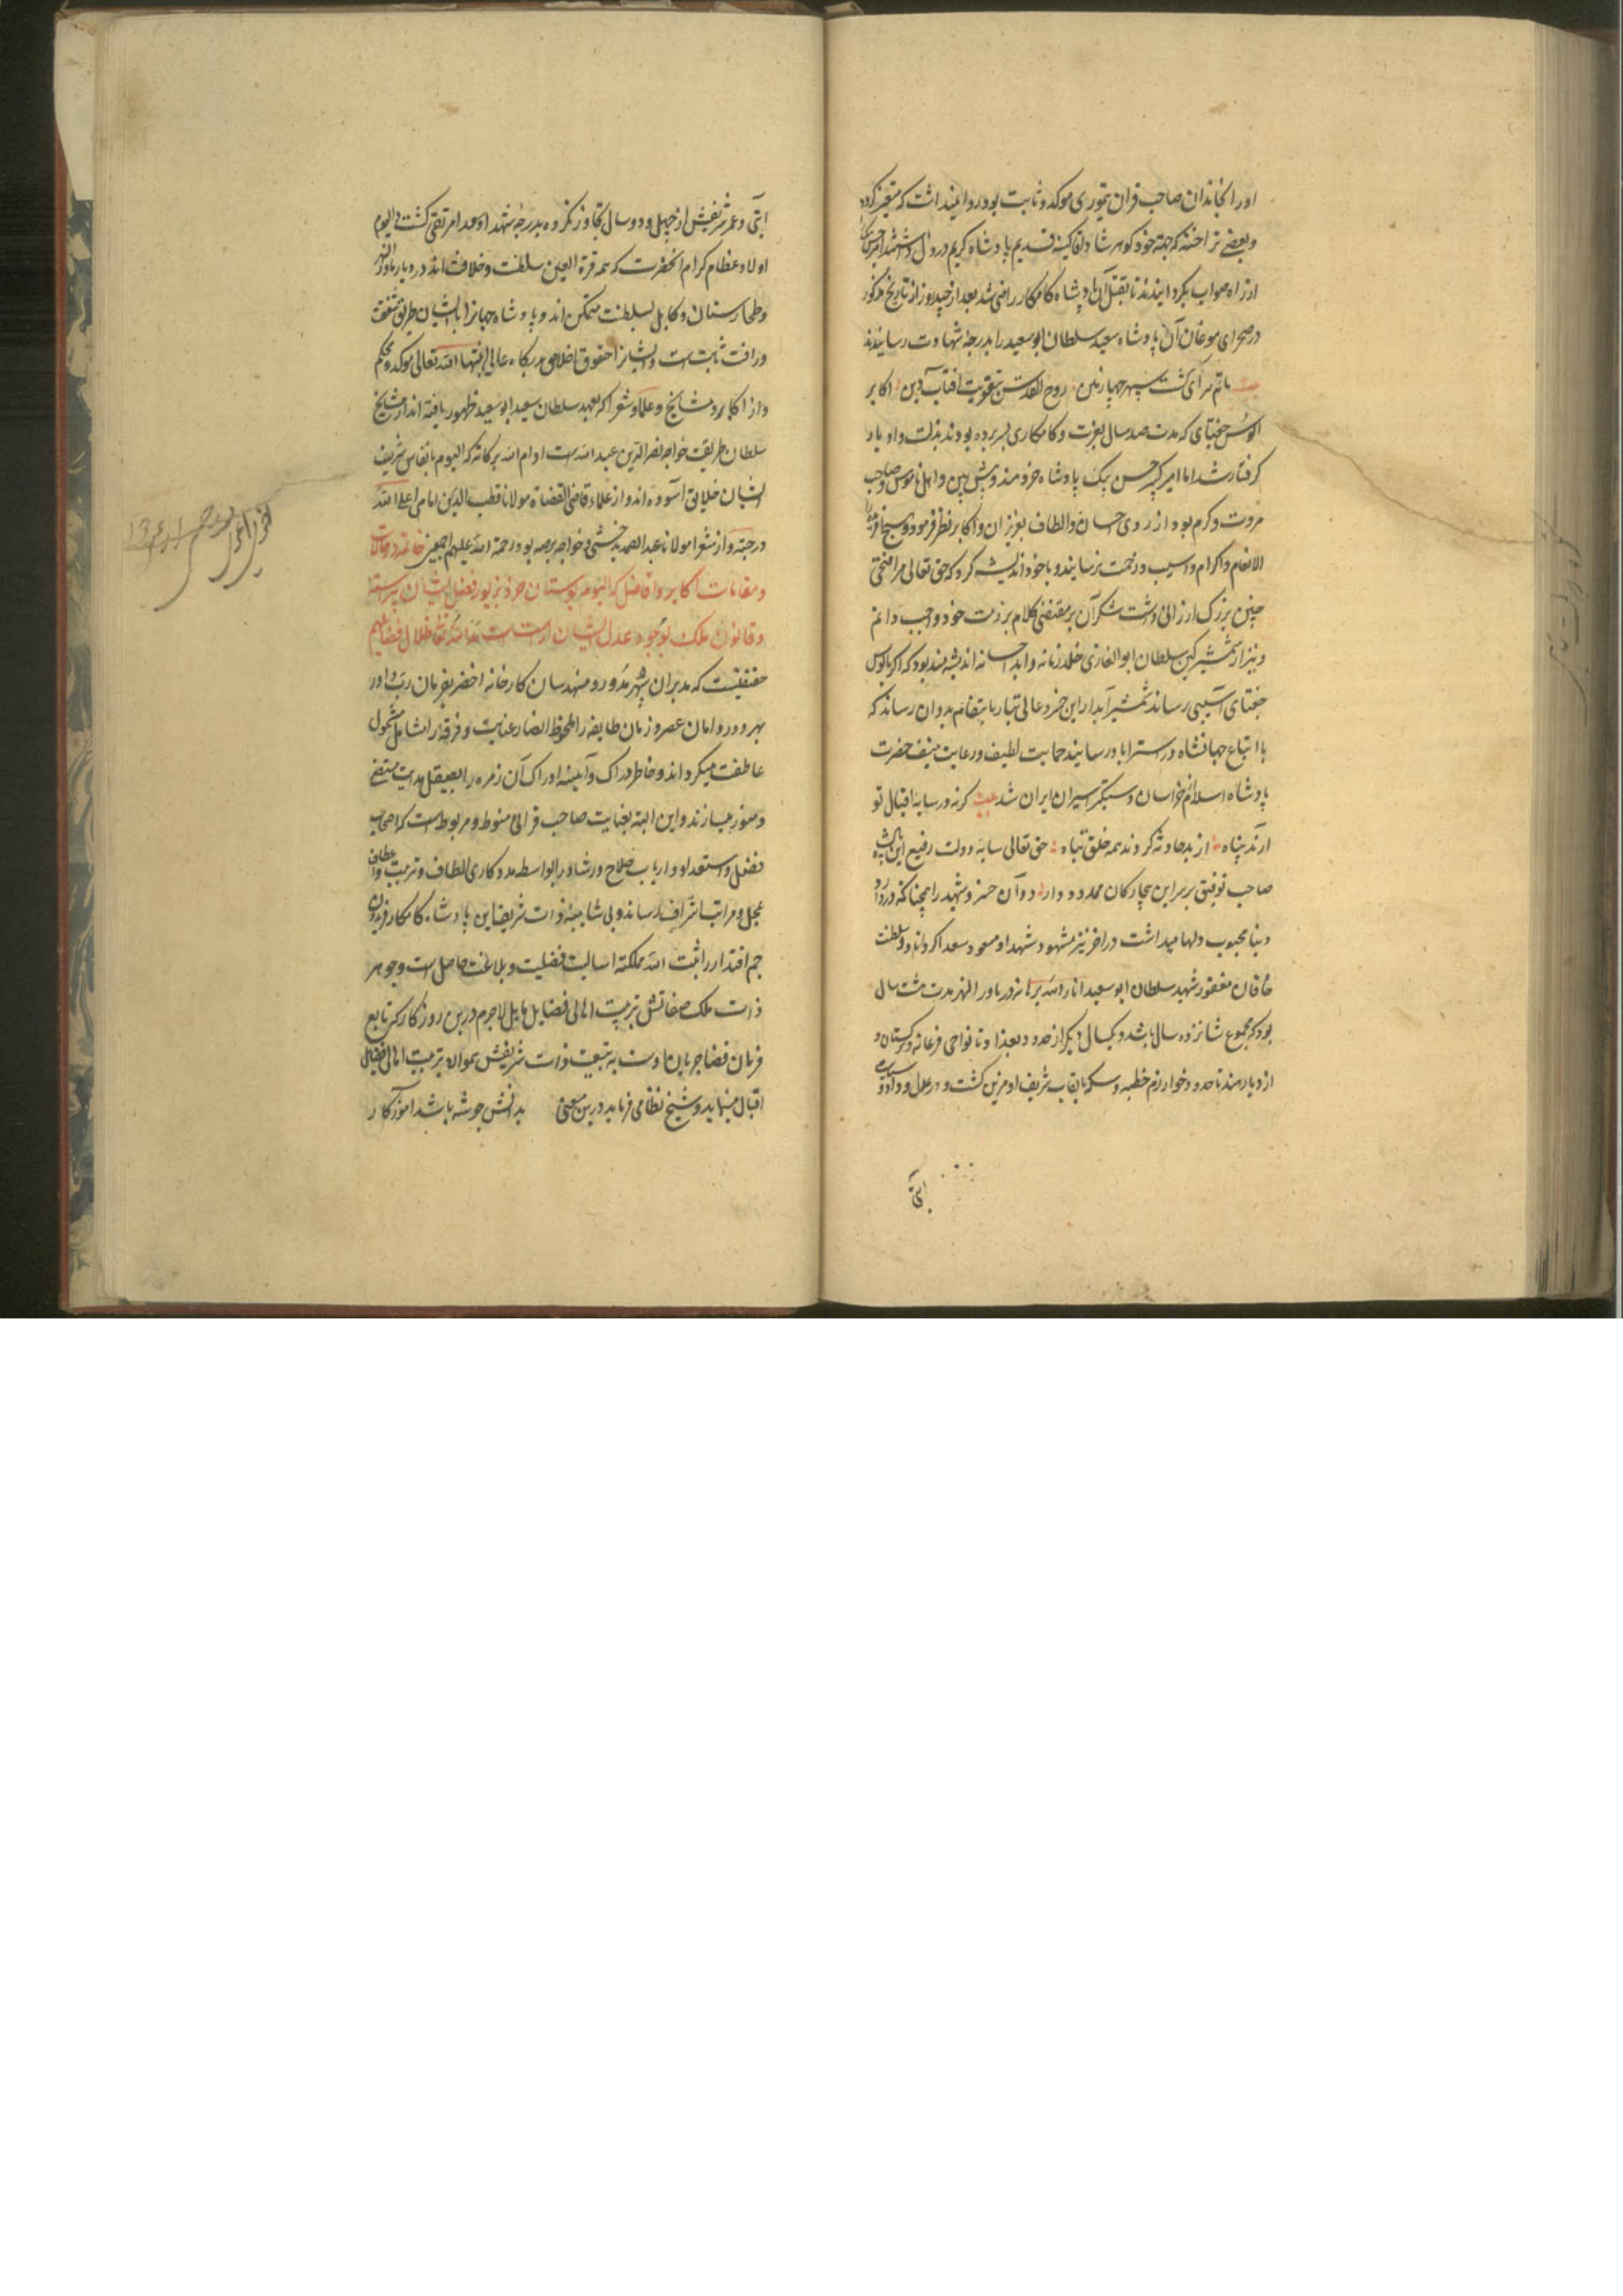 اورا بخاندان صاحب قران تیموری موکد و ثابت بود روا نمیداشت که متغیر کردد
و بعضی تراخنه که جهة خون کوهرشاد بیکم کینه قدیم پادشاه کریم در دل داشتند امیر حسن بیک را
از راه صواب بکردانیدند تا بقتل آن پادشاه کامکار راضی شد بعد از چند روز از تاریخ مذکور
در صحرای موغان آن پادشاه سعید سلطان ابو سعید را بدرجهٔ شهادت رسانیدند
بیت ماتم سرای کشت سپهر چهارمین روح القدس بتعزیت آفتاب دین اکابر
الوس جغتای که مدت صد سال بعزت و کامکاری بسر برده بودند بذلت و ادبار
کرفتار شد اما امیر کبیر حسن بیک پادشاه خردمند و پیش بین و اهل ناموس و صاحب
مروت و کرم بود از روی احسان و الطاف بعزیزان و اکابر نظر فرمود و بهیچ آفریده
الا انعام و اکرام و آسیب و زحمت نرسانید و با خود اندیشه کرد که حق تعالی مرا فتحی
چنین بزرک ارزانی داشت شکر آن بر مقتضی کلام بر ذمت خود واجب دانم
و نیز از شمشیر کین سلطان ابوالغازی خلد زمانه و ابد احسانه اندیشه مند بود که اکر بالوس
جغتای آسیبی رساند شمشیر آبدار این خسرو عالی تبار بانتقام بدو آن رساند که
با اتباع جهانشاه در استراباد رسانید حمایت لطیف و رعایت منیف حضرت
پادشاه اسلام خراسان دستکیر اسیران ایران شد بیت کر نه در سایه اقبال تو
آرند پناه از بد حادثه کردند همه خلق تباه حق تعالی سایهٔ دولت رفیع این پادشاه
صاحب توفیق بر سر این بیچارکان ممدود دارد و آن خسرو شهید را همچنانکه در دار
دنیا محبوب دلها میداشت در آخرة نیز مشهود شهدا و مسعود سعدا کرداناد و سلطنت
خاقان مغفور شهید سلطان ابو سعید انار الله برهانه در ماوراالنهر مدت هشت سال
بود که مجموع شانزده سال باشد و یکسال دیکر از حدود بغداد تا نواحی فرغانه و ترکستان و
از دیار هند تا حدود خوارزم خطبه و سکه بالقاب شریف او مزین کشت و در عدل و داد و سیاست
آیتی
آیتی و عمر شریفش از چهل و دو سال تجاوز نکرده بدرجهٔ شهدا و سعدا مرتقی کشت و الیوم
اولاد عظام کرام آنحضرت که همه قرة العین سلطنت و خلافت اند در دیار ماورا النهر
و طخارستان و کابل بسلطنت متمکن اند و پادشاه جهانرا با ایشان طریق شفقت
و رافت ثابت است و ایشانرا حقوق اخلاص بدرکاه عالی ابقیها الله تعالی موکد و محکم
و از اکابر و مشایخ و علما و شعرا که بعهد سلطان سعید ابو سعید ظهور یافته اند از مشایخ
سلطان طریقت خواجه نصر الدین عبید الله است ادام الله برکاته که الیوم بانفاس شریف
ایشان خلایق آسوده اند و از علما قاضی القضاة مولانا قطب الدین امامی اعلا الله
درجته و از شعرا مولانا عبد الصمد بدخشی و خواجه برمه بود رحمة الله علیهم اجمعین خاتمه در حالات
و مقامات اکابر و افاضل که الیوم بوستان خرد بزیور فضل ایشان آراسته
و قانون ملک بوجود عدل ایشان آراسته است مد الله تعالی ظلال فضایلهم
حقیقتیست که مدبران سپهر مدور و مهندسان کارخانه اخضر بفرمان رب داور
بهر دور و امان عصر و زمان طایفه را ملحوظ انظار عنایت و فرقه را شامل شمول
عاطفت میکرداند و خاطر دراک و آیینه ادراک آن زمره را بصیقل هدایت مستضی
و منور میسازند و این البته بعنایت صاحب قرانی منوط و مربوط است که اصحاب
فضل و استعداد و ارباب صلاح و رشاد را بواسطه مددکاری الطاف و تربیت و اعطاف
بمحل و مراتب اشراف رساند و بی شایبه ذات شریف این پادشاه کامکار فریدون
جم اقتدار را ثبت الله مملکته اسالیب فضیلت و بلاغت حاصل است و جوهر
ذات ملک صفاتش بتربیت اهالی فضایل مایل لاجرم درین روزکار که تابع
فرمان قضا جریان اوست به تبعیت ذات شریفش همواره بتربیت اهالی فضایل
اقبال مینماید و شیخ نظامی فرماید درین معنی بدانش چو شه باشد آموزکار